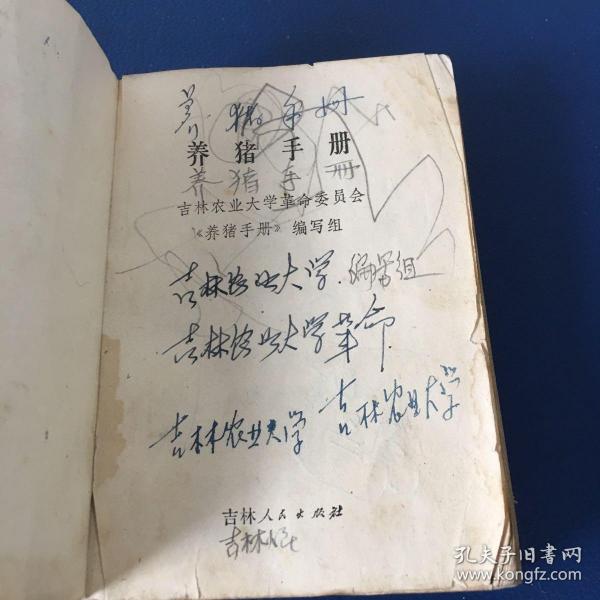 养猪手册
养猪手册
养猪手册
吉林农业大学革命委员会
《养猪手册》编写组
吉林农业大学 编写组
吉林农业大学革命
吉林农业大学 吉林农业大学
吉林人民出版社
吉林人民
孔夫子旧书网
www.kongfz.com